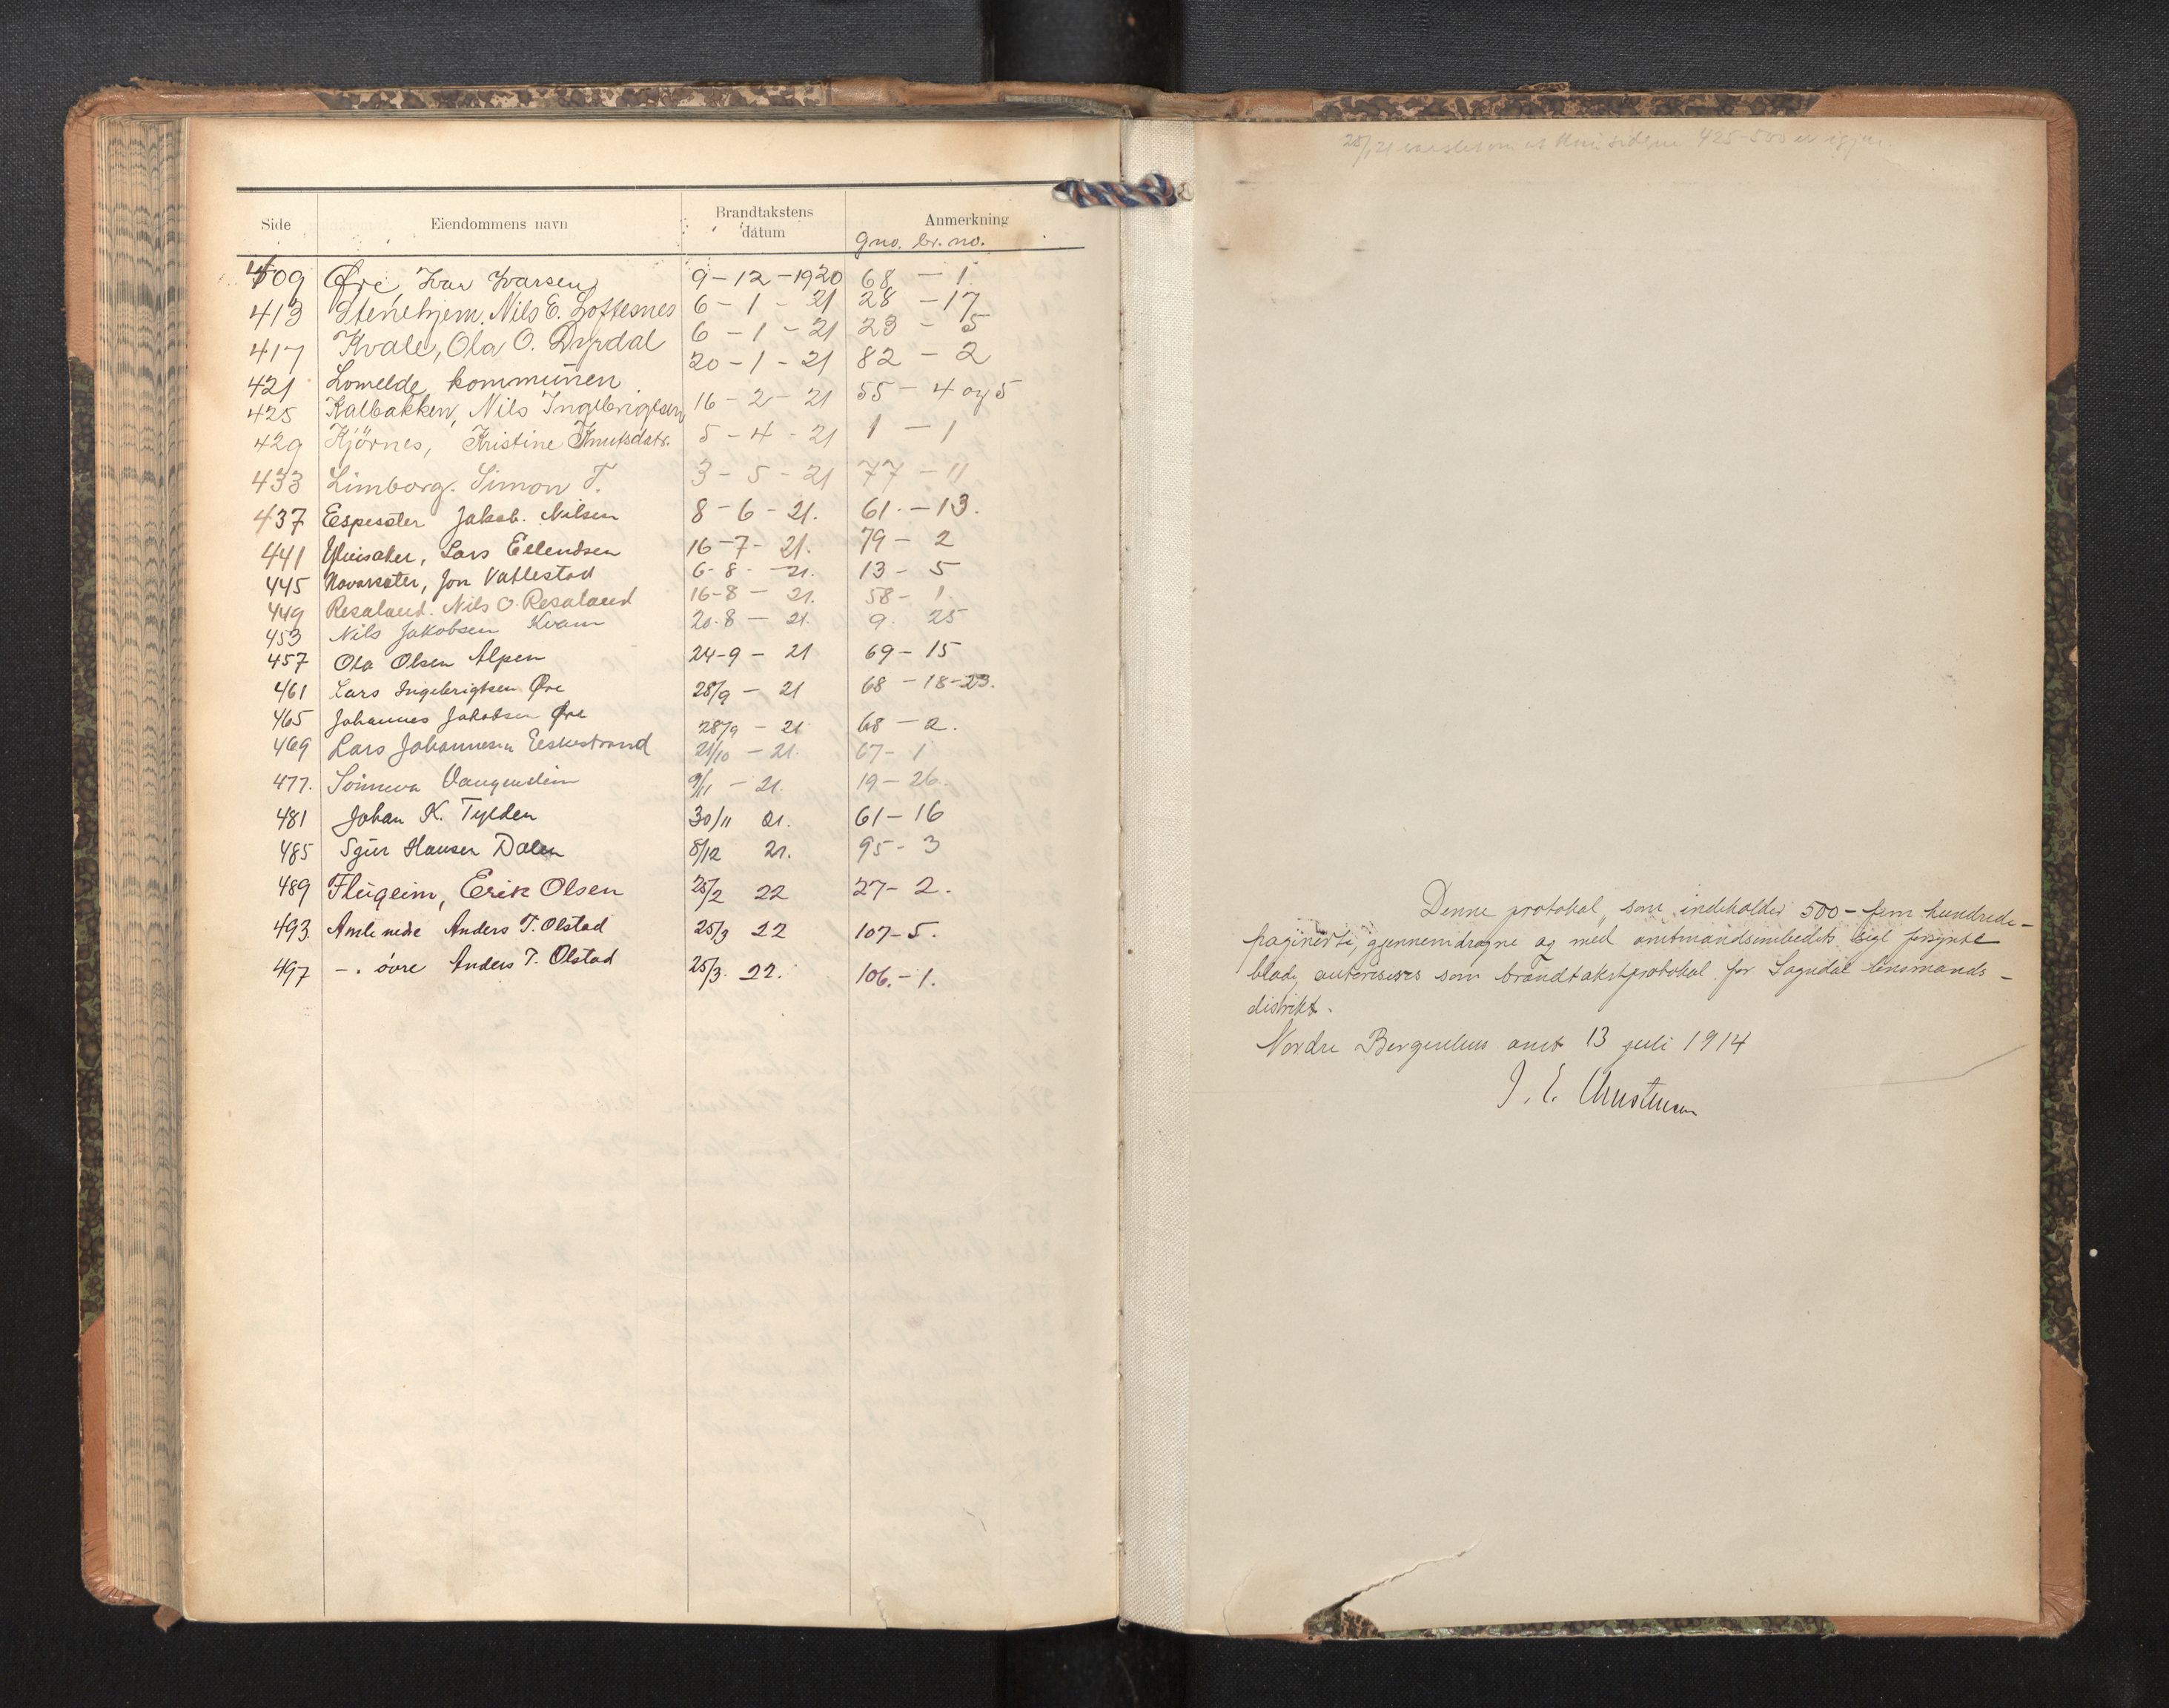 Side Eiendommens navn Brandtakstens datum Anmerkning
gno. br. no.
409 Øre Ivar Ivarsen 9-12-1920 68 - 1
413 Stenehjem. Nils E. Loftesnes 6 - 1 - 21 28 - 17
417 Kvale, Ola O. Dyrdal 6 - 1 - 21 23 - 5
421 Lomelde kommunen 20 - 1 - 21 82 - 2
425 Kalbakken, Nils Ingebrigtsen 16 - 2 - 21 55 - 4 og 5
429 Kjörnes, Kristine Knutsdatr. 5 - 4 - 21 1 - 1
433 Limborg. Simon T. 3 - 5 - 21 77 - 11
437 Espesæter Jakob. Nilsen 8 - 6 - 21. 61. - 13.
441 Lars Eellendsen 16 - 7 - 21. 79 - 2
445 Navarsæter, Jon Vatlestad 6 - 8 - 21. 13 - 5
449 Resaland. Nils O. Resaland 16-8 - 21. 58 - 1
453 Nils Jakobsen Kvam 20.8 - 21. 9. 25
457 Ola Olsen Alpen 24-9 - 21 69 - 15
461 Lars Ingebrigtsen Øre 28/9 - 21 68 - 18-23.
465 Johannes Jakobsen Øre 28/9 - 21 68 - 2.
469 Lars Johannesen Eeskestrand 21/10 - 21. 67 - 1
477. Sönneva Vangestein 9/11 - 21. 19 - 26.
481 Johan K. Tylden 30/11 21. 61 - 16
485 Sjur Hansen Dalen 8/12 21. 95 - 3
489 Flugeim, Erik Olsen 25/2 22 27 - 2.
493. Amle nedre Anders T. Olstad 25/3 22 107 - 5.
497 - . övre Anders T. Olstad 25/3. 22. 106. - 1.
sidene 425-500 er igjen
Denne protokol, som indeholder 500 - fem hundrede -
paginerte, gjennemdragne og med amtmandsembedets sigl forsynte
blade, autoriseres som brandtakstprotokol for Sogndal lensmands-
distrikt.
Nordre Bergenhus amt 13 juli 1914
J. E. Christensen